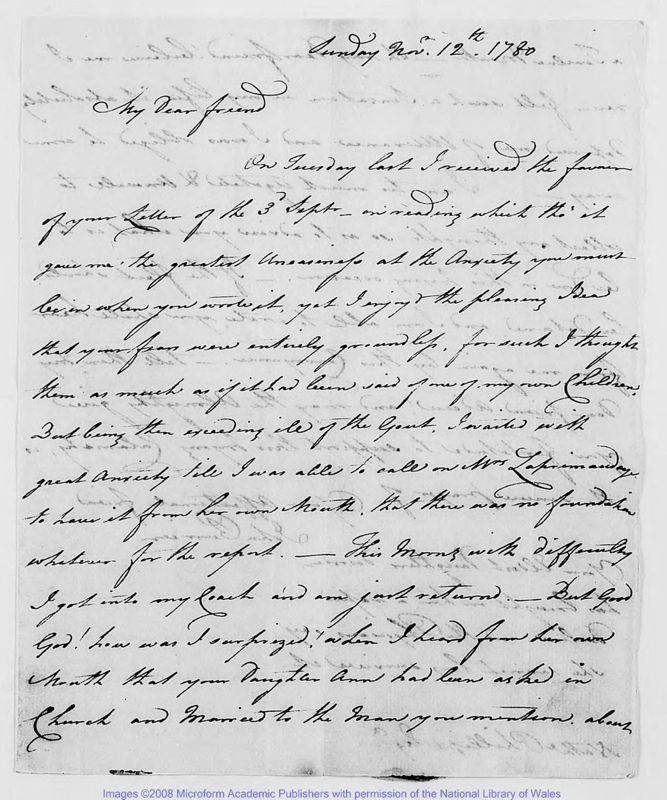 Sunday Novr. 12th. 1780
My Dear friend
On Tuesday last I received the favour
of your Letter of the 3d Septr – on reading which tho' it
gave me the greatest Uneasiness at the Anxiety you must
be in when you wrote it, yet I enjoy'd the pleasing Idea
that your fears were entirely groundless, for such I thought
them as much as if it had been said of one of my own Children.
But being then exceeding ill of the Gout, I waited with
great Anxiety till I was able to call on Mrs Laprimaudaye
to have it from her own Mouth, that there was no foundation
whatever for the report. — This Morng with difficulty
I got into my Coach and am just returnd. — But Good
God! how was I surprized! when I heard from her own
Mouth that your Daughter Ann had been asked in
Church and Married to the Man you mention. about
Images ©2008 Microform Academic Publishers with permission of the National Library of Wales